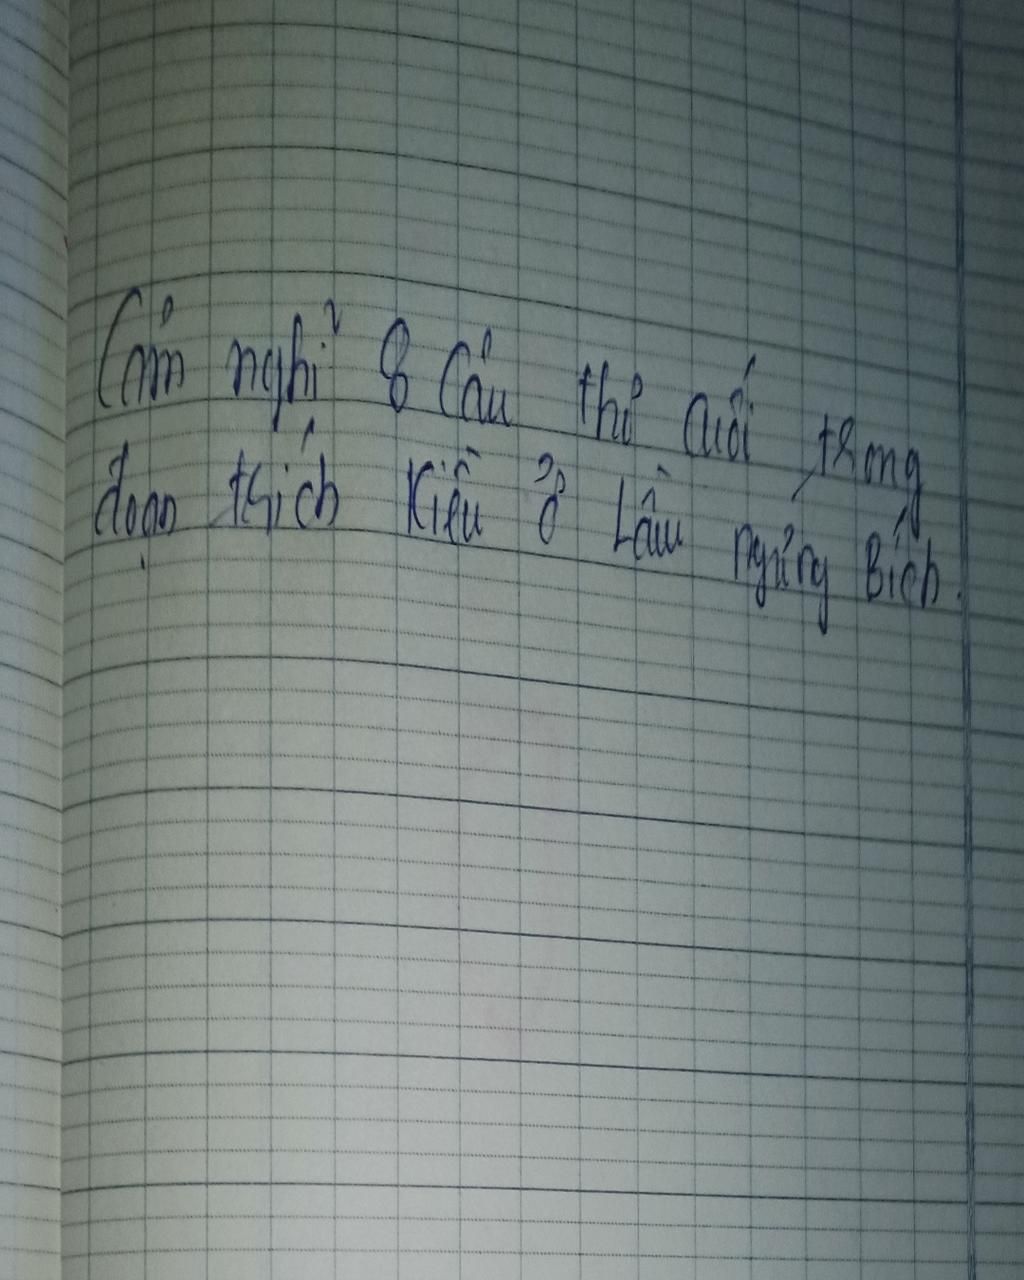 Cảm nghỉ 8 Câu thơ cuối trong
đoạn trích Kiều ở Lầu ngưng Bích.